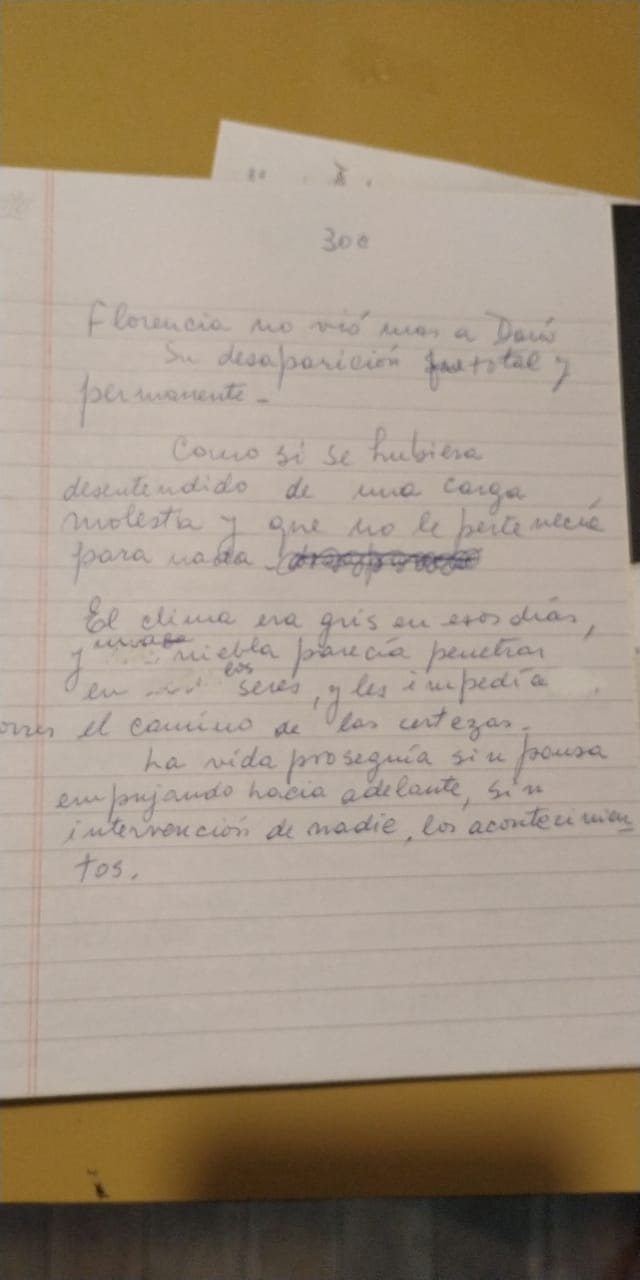 30e
Florencia no vió mas a Darío
Su desaparición fue total y
permanente -
Como si se hubiera
desentendido de una carga
molesta y que no le pertenecía
para nada -
El clima era gris en esos días,
y una niebla parecía penetrar
en los seres, y les impedía
el camino de las certezas -
La vida proseguía sin pausa
empujando hacia adelante, sin
intervención de nadie, los acontecimien
tos.